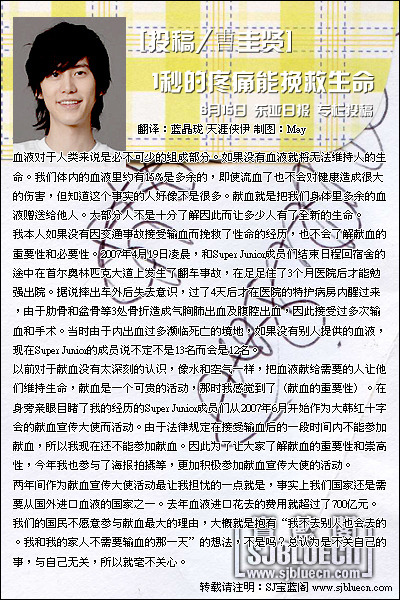 [投稿/曹圭贤]
1秒的疼痛能挽救生命
6月15日 东亚日报 专栏投稿
翻译：蓝晶珑 天涯侠伊 制图：May
血液对于人类来说是必不可少的组成部分。如果没有血液就将无法维持人的生
命。我们体内的血液里约有15%是多余的，即使流血了也不会对健康造成很大
的伤害，但知道这个事实的人好像不是很多。献血就是把我们身体里多余的血
液赠送给他人。大部分人不是十分了解因此而让多少人有了全新的生命。
我本人如果没有因交通事故接受输血而挽救了性命的经历，也不会了解献血的
重要性和必要性。2007年4月19日凌晨，和Super Junior成员们结束日程回宿舍的
途中在首尔奥林匹克大道上发生了翻车事故，在足足住了3个月医院后才能勉
强出院。据说摔出车外后失去意识，过了4天后才在医院的特护病房内醒过来
，由于肋骨和盆骨等3处骨折造成气胸肺出血及腹腔出血，因此接受过多次输
血和手术。当时由于内出血过多濒临死亡的境地，如果没有别人提供的血液，
现在Super Junior的成员说不定不是13名而会是12名。
以前对于献血没有太深刻的认识，像水和空气一样，把血液献给需要的人让他
们维持生命，献血是一个可贵的活动，那时我感觉到了（献血的重要性）。在
身旁亲眼目睹了我的经历的Super Junior成员们从2007年6月开始作为大韩红十字
会的献血宣传大使而活动。由于法律规定在接受输血后的一段时间内不能参加
献血，所以我现在还不能参加献血。因此为了让大家了解献血的重要性和崇高
性，今年我也参与了海报拍摄等，更加积极参加献血宣传大使的活动。
两年间作为献血宣传大使活动最让我担忧的一点就是，事实上我们国家还是需
要从国外进口血液的国家之一。去年血液进口花去的费用就超过了700亿元。
我们的国民不愿意参与献血最大的理由，大概就是抱有“我不去别人也会去的
。我和我的家人不需要输血的那一天”的想法，不是吗？总认为是不关自己的
事，与自己无关，所以就毫不关心。
SJ宝蓝阁
SJBLUECN
www.sjbluecn.com
转载请注明：SJ宝蓝阁 www.sjbluecn.com